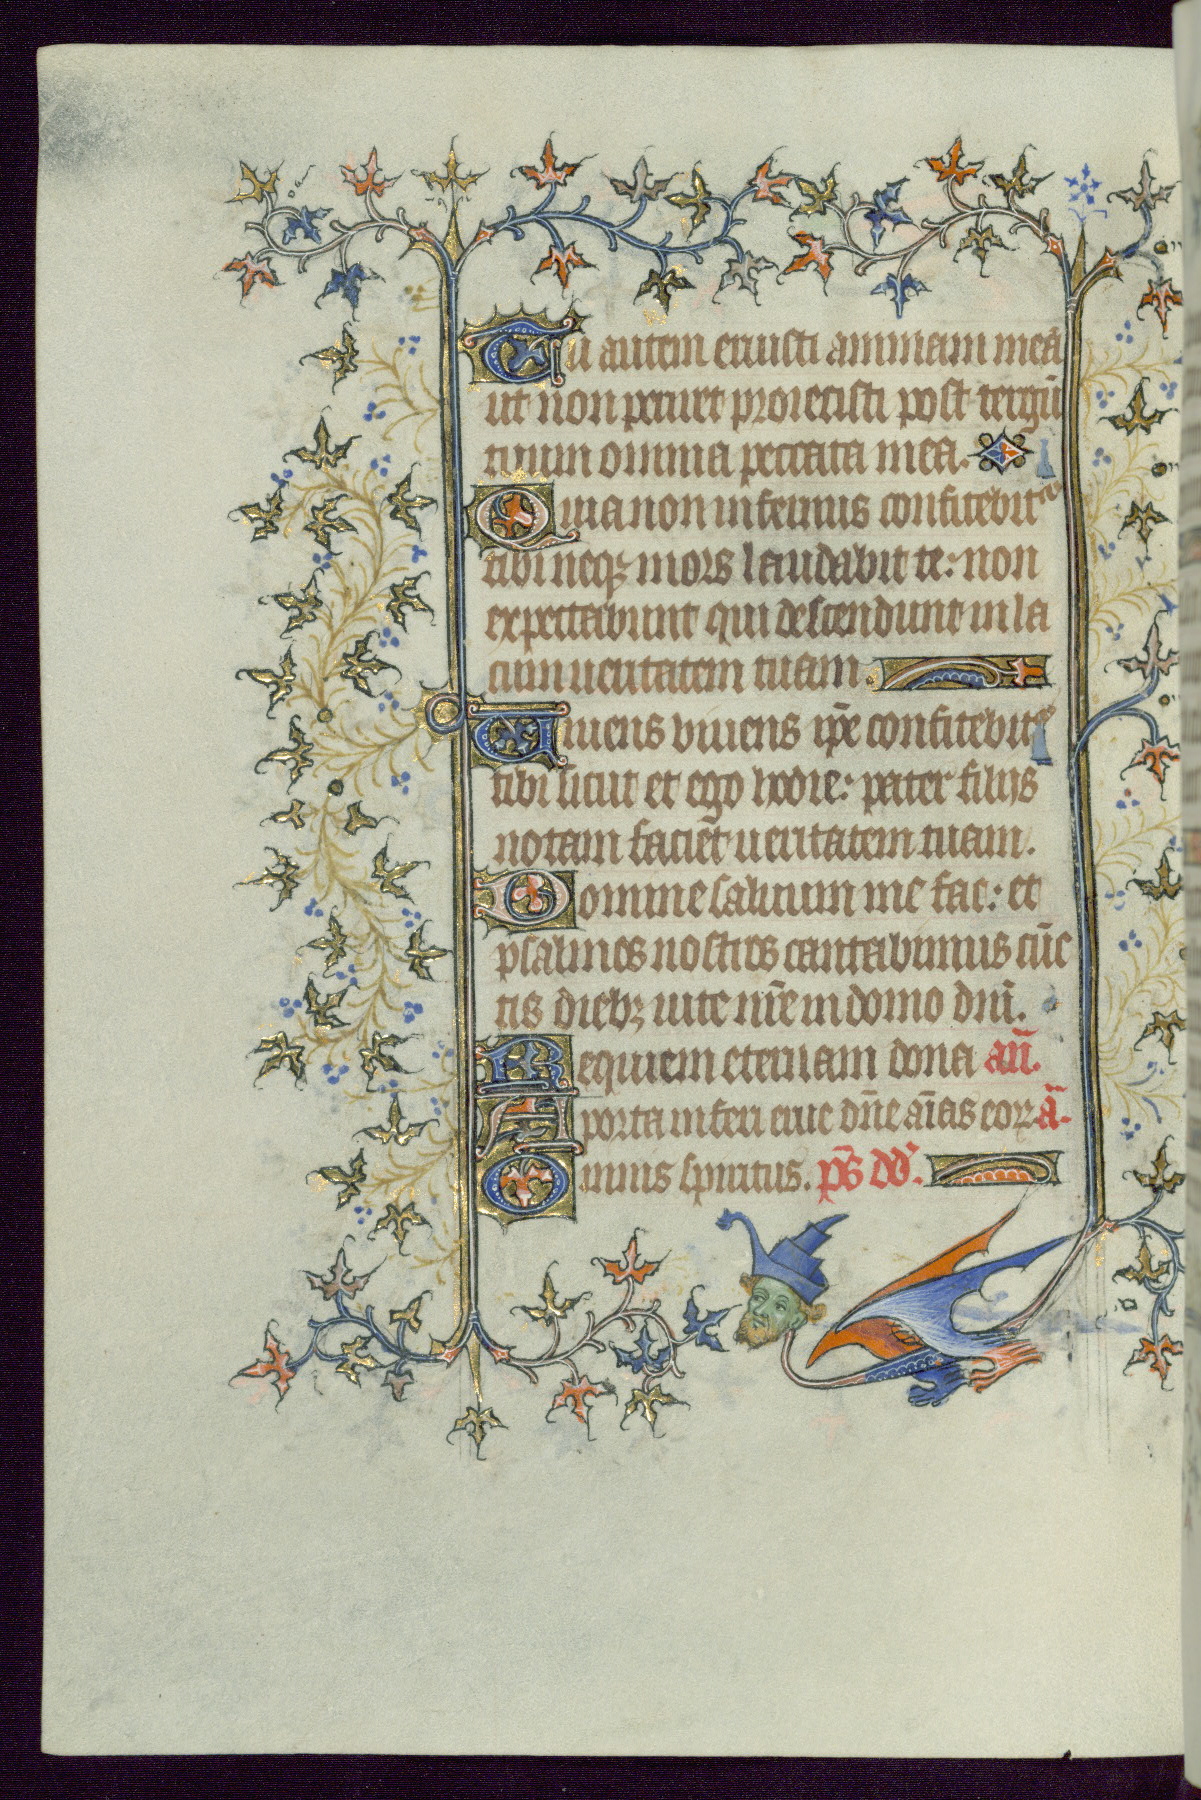 Tu autem eruisti animam meā
ut non periret proiecisti post tergū
tuum omnia peccata mea.
Quia non infernus confitebit᷑
tibi neqꝫ mors laudabit te: non
expectabunt qui descendunt in la
cum ueritatem tuam.
Uiuens viuens ip̄e confitebit᷑
tibi sicut et ego hodie: pater filijs
notam faciet ueritatem tuam.
Domine saluum me fac: et
psalmos nostros cantabimus cūc
tis diebꝫ uite nr̄e in domo dn̄i.
Requiem eternam dona an̄.
A porta inferi erue dn̄e aīas eoꝝ ā.
Omnis spiritus. ps̄ dd̄.